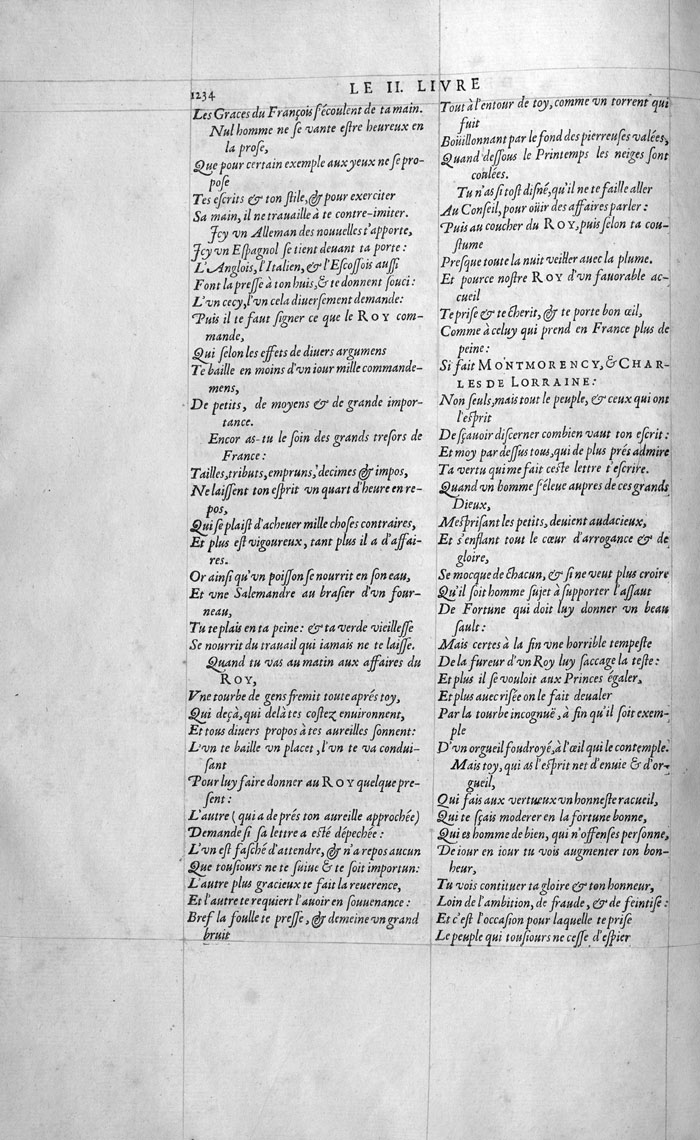 1234
LE II. LIVRE
Les Graces du François s'écoulent de ta main.
Nul homme ne se vante estre heureux en
la prose,
Que pour certain exemple aux yeux ne se pro-
pose
Tes escrits & ton stile, & pour exerciter
Sa main, il ne trauaille à te contre-imiter.
Icy vn Alleman des nouuelles t'apporte,
Icy vn Espagnol se tient deuant ta porte:
L'Anglois, l'Italien, & l'Escossois aussi
Font la presse à ton huis, & te donnent souci:
L'vn cecy, l'vn cela diuersement demande:
Puis il te faut signer ce que le ROY com-
mande,
Qui selon les effets de diuers argumens
Te baille en moins d'vn iour mille commande-
mens,
De petits, de moyens & de grande impor-
tance.
Encor as-tu le soin des grands tresors de
France:
Tailles, tributs, empruns, decimes & impos,
Ne laissent ton esprit vn quart d'heure en re-
pos,
Qui se plaist d'acheuer mille choses contraires,
Et plus est vigoureux, tant plus il a d'affai-
res.
Or ainsi qu'vn poisson se nourrit en son eau,
Et vne Salemandre au brasier d'vn four-
neau,
Tu te plais en ta peine: & ta verde vieillesse
Se nourrit du trauail qui iamais ne te laisse.
Quand tu vas au matin aux affaires du
ROY,
Vne tourbe de gens fremit toute aprés toy,
Qui deçà, qui delà tes costez enuironnent,
Et tous diuers propos à tes aureilles sonnent:
L'vn te baille vn placet, l'vn te va condui-
sant
Pour luy faire donner au ROY quelque pre-
sent:
L'autre (qui a de prés ton aureille approchée)
Demande si sa lettre a esté dépechée:
L'vn est fasché d'attendre, & n'a repos aucun
Que tousiours ne te suiue & te soit importun:
L'autre plus gracieux te fait la reuerence,
Et l'autre te requiert l'auoir en souuenance:
Bref la foulle te presse, & demeine vn grand
bruit
Tout à l'entour de toy, comme vn torrent qui
fuit
Boüillonnant par le fond des pierreuses valées,
Quand dessous le Printemps les neiges sont
coulées.
Tu n'as si tost disné, qu'il ne te faille aller
Au Conseil, pour oüir des affaires parler:
Puis au coucher du ROY, puis selon ta cou-
stume
Presque toute la nuit veiller auec la plume.
Et pource nostre ROY d'vn fauorable ac-
cueil
Te prise & te cherit, & te porte bon œil,
Comme à celuy qui prend en France plus de
peine:
Si fait MONTMORENCY, & CHAR-
LES DE LORRAINE:
Non seuls, mais tout le peuple, & ceux qui ont
l'esprit
De sçauoir discerner combien vaut ton escrit:
Et moy par dessus tous, qui de plus prés admire
Ta vertu qui me fait ceste lettre t'escrire.
Quand vn homme s'éleue aupres de ces grands
Dieux,
Mesprisant les petits, deuient audacieux,
Et s'enflant tout le cœur d'arrogance & de
gloire,
Se mocque de chacun, & si ne veut plus croire
Qu'il soit homme sujet à supporter l'assaut
De Fortune qui doit luy donner vn beau
sault:
Mais certes à la fin vne horrible tempeste
De la fureur d'vn Roy luy saccage la teste:
Et plus il se vouloit aux Princes égaler,
Et plus auec risée on le fait deualer
Par la tourbe incognuë, à fin qu'il soit exem-
ple
D'vn orgueil foudroyé, à l'œil qui le contemple.
Mais toy, qui as l'esprit net d'enuie & d'or-
gueil,
Qui fais aux vertueux vn honneste racueil,
Qui te sçais moderer en la fortune bonne,
Qui es homme de bien, qui n'offenses personne,
De iour en iour tu vois augmenter ton bon-
heur,
Tu vois contituer ta gloire & ton honneur,
Loin de l'ambition, de fraude, & de feintise:
Et c'est l'occasion pour laquelle te prise
Le peuple qui tousiours ne cesse d'espier